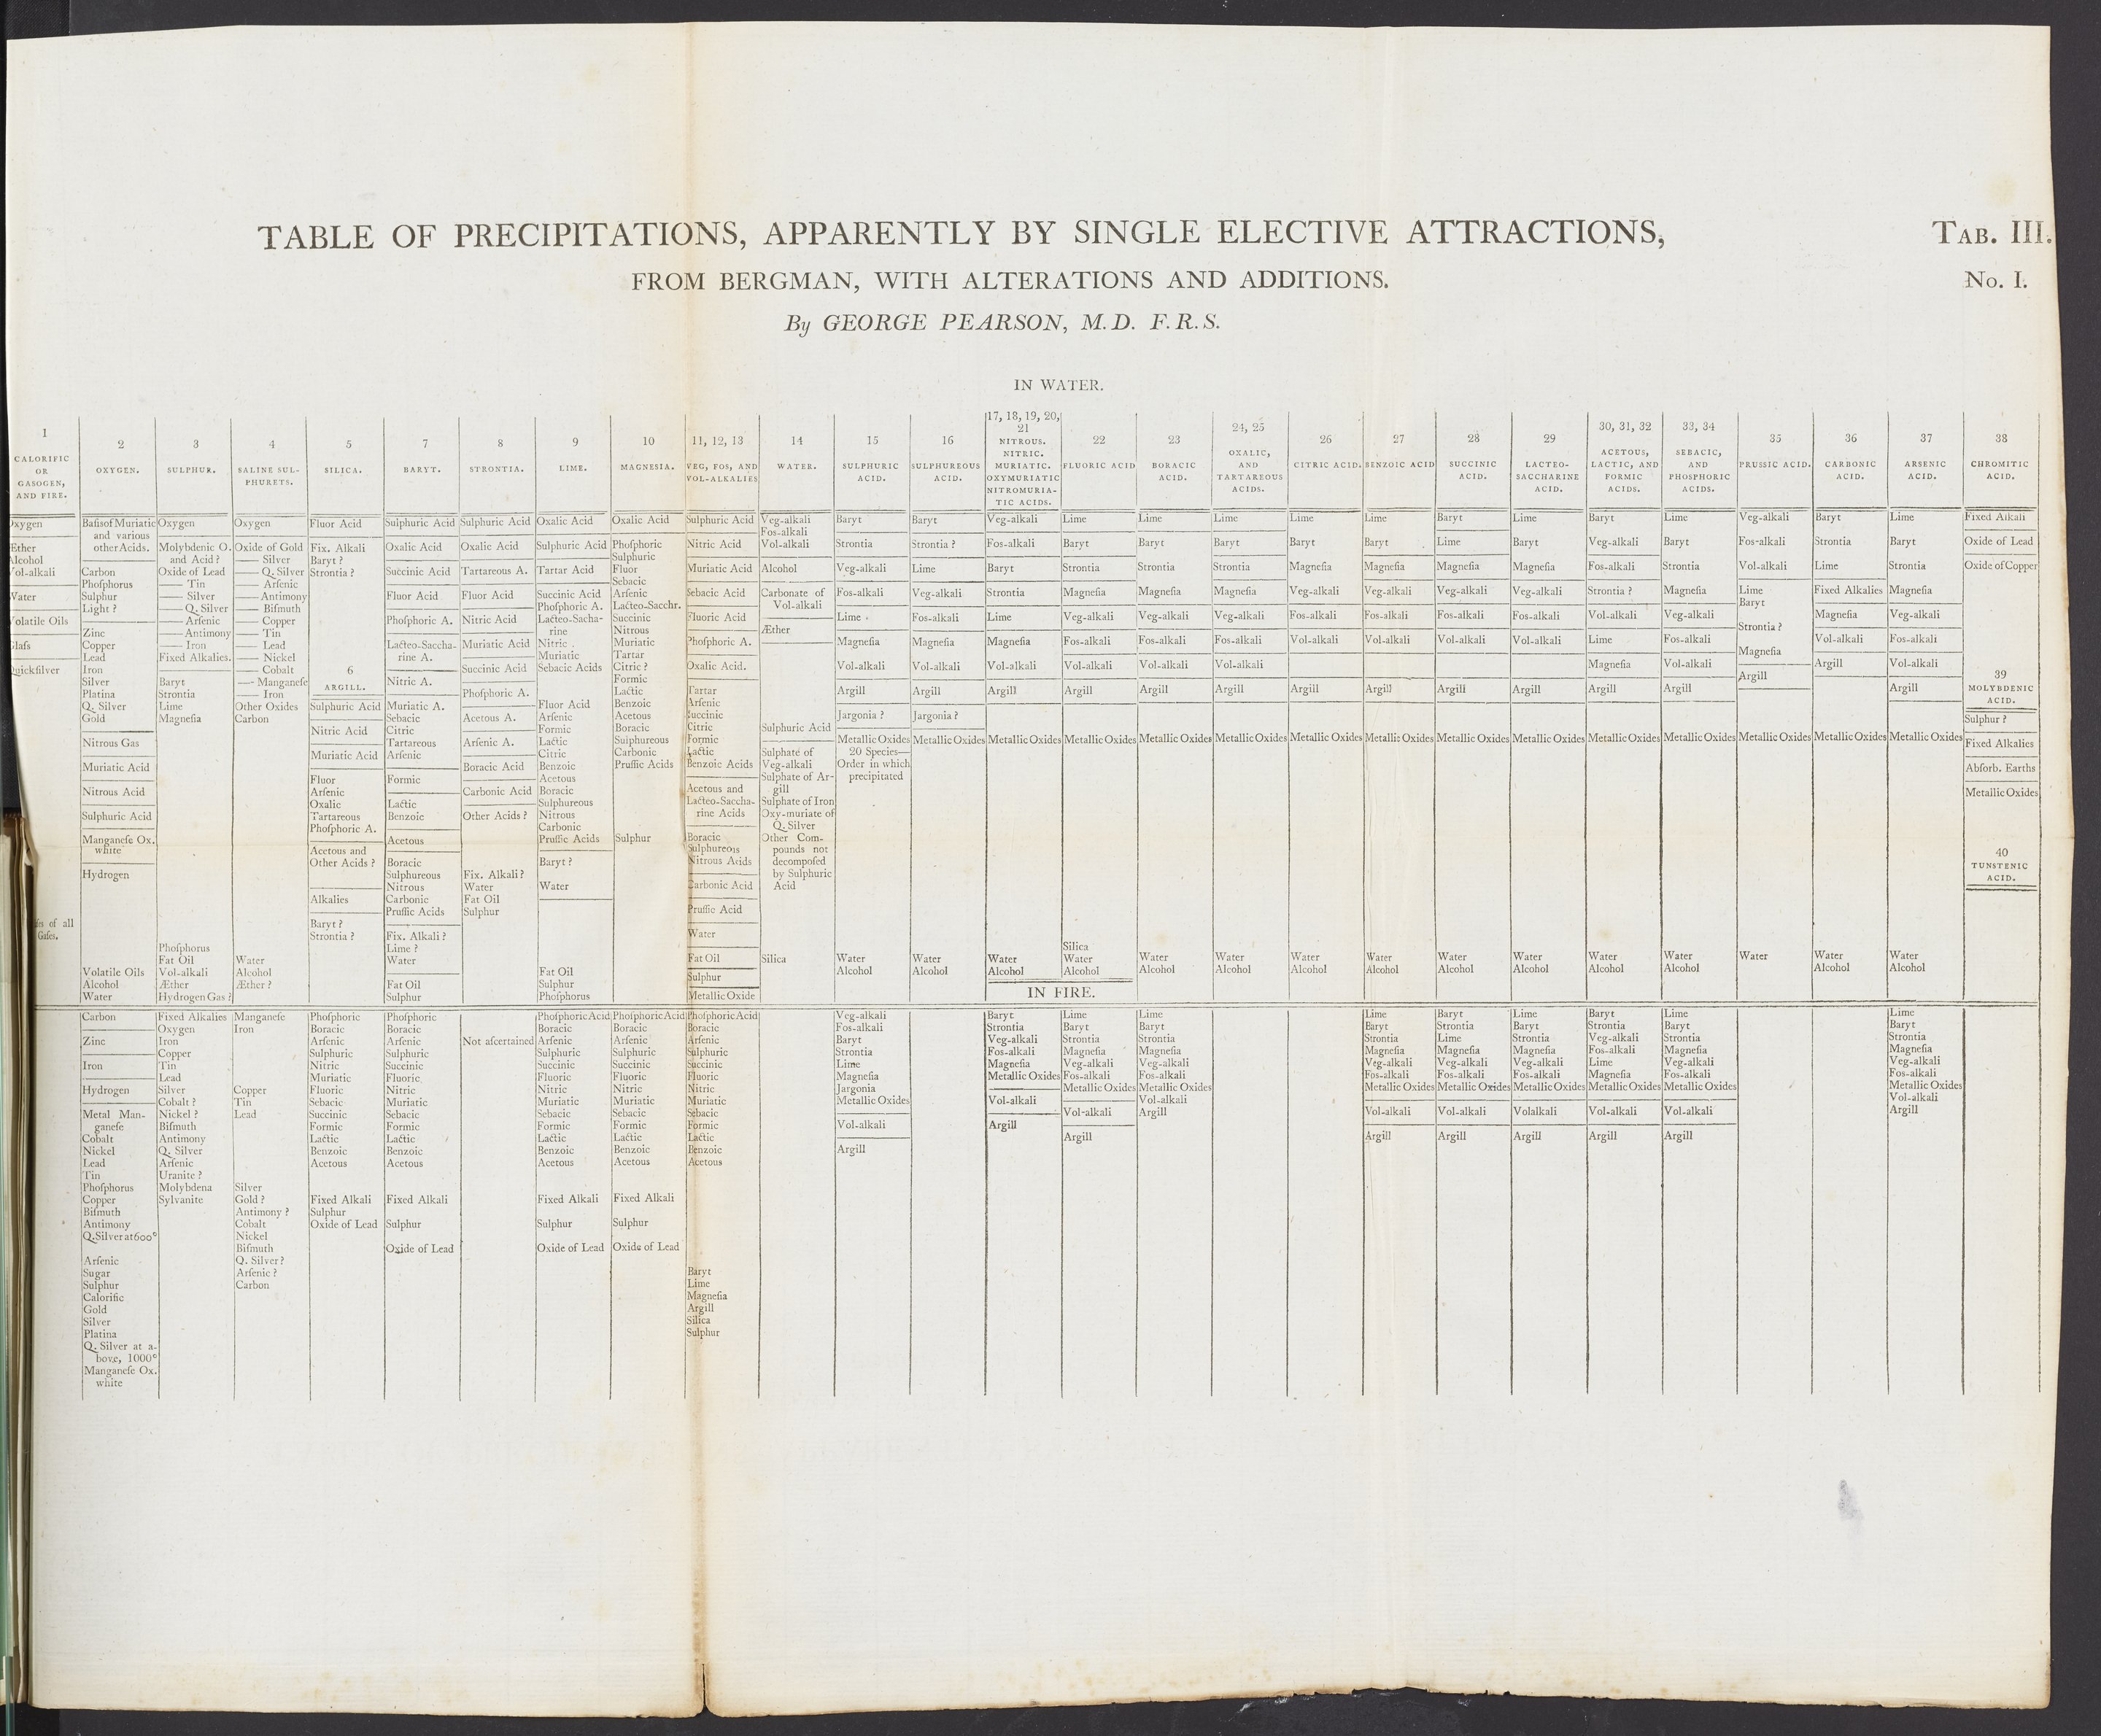 TABLE OF PRECIPITATIONS, APPARENTLY BY SINGLE ELECTIVE ATTRACTIONS,
TAB. III.
FROM BERGMAN, WITH ALTERATIONS AND ADDITIONS.
No. I.
By GEORGE PEARSON, M.D. F.R.S.
IN WATER.
1
CALORIFIC
OR
GASOGEN,
AND FIRE.
Oxygen
Æther
Alcohol
Vol-alkali
Water
Volatile Oils
Glaſs
Quickſilver
of all
Gaſes.
2
OXYGEN.
Baſis of Muriatic
and various
other Acids.
Carbon
Phoſphorus
Sulphur
Light ?
Zinc
Copper
Lead
Iron
Silver
Platina
Q. Silver
Gold
Nitrous Gas
Muriatic Acid
Nitrous Acid
Sulphuric Acid
Manganeſe Ox.
white
Hydrogen
Volatile Oils
Alcohol
Water
Carbon
Zinc
Iron
Hydrogen
Metal Man-
ganeſe
Cobalt
Nickel
Lead
Tin
Phoſphorus
Copper
Biſmuth
Antimony
Q. Silver at 600°
Arſenic
Sugar
Sulphur
Calorific
Gold
Silver
Platina
Q. Silver at a-
bove, 1000°
Manganeſe Ox.
white
3
SULPHUR.
Oxygen
Molybdenic O.
and Acid ?
Oxide of Lead
—— Tin
—— Silver
—— Q. Silver
—— Arſenic
—— Antimony
—— Iron
Fixed Alkalies.
Baryt
Strontia
Lime
Magneſia
Phoſphorus
Fat Oil
Vol-alkali
Æther
Hydrogen Gas ?
Fixed Alkalies
Oxygen
Iron
Copper
Tin
Lead
Silver
Cobalt ?
Nickel ?
Biſmuth
Antimony
Q. Silver
Arſenic
Uranite ?
Molybdena
Sylvanite
4
SALINE SUL-
PHURETS.
Oxygen
Oxide of Gold
—— Silver
—— Q. Silver
—— Arſenic
—— Antimony
—— Biſmuth
—— Copper
—— Tin
—— Lead
—— Nickel
—— Cobalt
—— Manganeſe
—— Iron
Other Oxides
Carbon
Water
Alcohol
Æther ?
Manganeſe
Iron
Copper
Tin
Lead
Silver
Gold ?
Antimony ?
Cobalt
Nickel
Biſmuth
Q. Silver ?
Arſenic ?
Carbon
5
SILICA.
Fluor Acid
Fix. Alkali
Baryt ?
Strontia ?
6
ARGILL.
Sulphuric Acid
Nitric Acid
Muriatic Acid
Fluor
Arſenic
Oxalic
Tartareous
Phoſphoric A.
Acetous and
Other Acids ?
Alkalies
Baryt ?
Strontia ?
Phoſphoric
Boracic
Arſenic
Sulphuric
Nitric
Muriatic
Fluoric
Sebacic
Succinic
Formic
Lactic
Benzoic
Acetous
Fixed Alkali
Sulphur
Oxide of Lead
7
BARYT.
Sulphuric Acid
Oxalic Acid
Succinic Acid
Fluor Acid
Phoſphoric A.
Lacteo-Saccha-
rine A.
Nitric A.
Muriatic A.
Sebacic
Citric
Tartareous
Arſenic
Formic
Lactic
Benzoic
Acetous
Boracic
Sulphureous
Nitrous
Carbonic
Pruſſic Acids
Fix. Alkali ?
Lime ?
Water
Fat Oil
Sulphur
Phoſphoric
Boracic
Arſenic
Sulphuric
Succinic
Fluoric
Nitric
Muriatic
Sebacic
Formic
Lactic
Benzoic
Acetous
Fixed Alkali
Sulphur
Oxide of Lead
8
STRONTIA.
Sulphuric Acid
Oxalic Acid
Tartareous A.
Fluor Acid
Nitric Acid
Muriatic Acid
Succinic Acid
Phoſphoric A.
Acetous A.
Arſenic A.
Boracic Acid
Carbonic Acid
Other Acids ?
Fix. Alkali ?
Water
Fat Oil
Sulphur
Not aſcertained
9
LIME.
Oxalic Acid
Sulphuric Acid
Tartar Acid
Succinic Acid
Phoſphoric A.
Lacteo-Sacha-
rine
Nitric
Muriatic
Sebacic Acids
Fluor Acid
Arſenic
Formic
Lactic
Citric
Benzoic
Acetous
Boracic
Sulphureous
Nitrous
Carbonic
Pruſſic Acids
Baryt ?
Water
Fat Oil
Sulphur
Phoſphorus
Phoſphoric Acid
Boracic
Arſenic
Sulphuric
Succinic
Fluoric
Nitric
Muriatic
Sebacic
Formic
Lactic
Benzoic
Acetous
Fixed Alkali
Sulphur
Oxide of Lead
10
MAGNESIA.
Oxalic Acid
Phoſphoric
Sulphuric
Fluor
Sebacic
Arſenic
Lacteo-Sacchr.
Succinic
Nitrous
Muriatic
Tartar
Citric ?
Formic
Lactic
Benzoic
Acetous
Boracic
Sulphureous
Carbonic
Pruſſic Acids
Sulphur
Phoſphoric Acid
Boracic
Arſenic
Sulphuric
Succinic
Fluoric
Nitric
Muriatic
Sebacic
Formic
Lactic
Benzoic
Acetous
Fixed Alkali
Sulphur
Oxide of Lead
11, 12, 13
VEG, FOS, AND
VOL-ALKALIES
Sulphuric Acid
Nitric Acid
Muriatic Acid
Sebacic Acid
Fluoric Acid
Phoſphoric A.
Oxalic Acid.
Tartar
Arſenic
Succinic
Citric
Formic
Lactic
Benzoic Acids
Acetous and
Lacteo-Saccha-
rine Acids
Boracic
Sulphureous
Nitrous Acids
Carbonic Acid
Pruſſic Acid
Water
Fat Oil
Sulphur
Metallic Oxide
Phoſphoric Acid
Boracic
Arſenic
Sulphuric
Succinic
Fluoric
Nitric
Muriatic
Sebacic
Formic
Lactic
Benzoic
Acetous
Baryt
Lime
Magneſia
Argill
Silica
Sulphur
14
WATER.
Veg-alkali
Fos-alkali
Vol-alkali
Alcohol
Carbonate of
Vol-alkali
Æther
Sulphuric Acid
Sulphate of
Veg-alkali
Sulphate of Ar-
gill
Sulphate of Iron
Oxy-muriate of
Q. Silver
Other Com-
pounds not
decompoſed
by Sulphuric
Acid
Silica
15
SULPHURIC
ACID.
Baryt
Strontia
Veg-alkali
Fos-alkali
Lime
Magneſia
Vol-alkali
Argill
Jargonia ?
Metallic Oxides
20 Species—
Order in which
precipitated
Water
Alcohol
Veg-alkali
Fos-alkali
Baryt
Strontia
Lime
Magneſia
Jargonia
Metallic Oxides
Vol-alkali
Argill
16
SULPHUREOUS
ACID.
Baryt
Strontia ?
Lime
Veg-alkali
Fos-alkali
Magneſia
Vol-alkali
Argill
Jargonia ?
Metallic Oxides
Water
Alcohol
17, 18, 19, 20,
21
NITROUS.
NITRIC.
MURIATIC.
OXYMURIATIC
NITROMURIA-
TIC ACIDS.
Veg-alkali
Fos-alkali
Baryt
Strontia
Lime
Magneſia
Vol-alkali
Argill
Metallic Oxides
Water
Alcohol
IN FIRE.
Baryt
Strontia
Veg-alkali
Fos-alkali
Magneſia
Metallic Oxides
Vol-alkali
Argill
22
FLUORIC ACID
Lime
Baryt
Strontia
Magneſia
Veg-alkali
Fos-alkali
Vol-alkali
Argill
Metallic Oxides
Silica
Water
Alcohol
Lime
Baryt
Strontia
Magneſia
Veg-alkali
Fos-alkali
Metallic Oxides
Vol-alkali
Argill
23
BORACIC
ACID.
Lime
Baryt
Strontia
Magneſia
Veg-alkali
Fos-alkali
Vol-alkali
Argill
Metallic Oxides
Water
Alcohol
Lime
Baryt
Strontia
Magneſia
Veg-alkali
Fos-alkali
Metallic Oxides
Vol-alkali
Argill
24, 25
OXALIC,
AND
TARTAREOUS
ACIDS.
Lime
Baryt
Strontia
Magneſia
Veg-alkali
Fos-alkali
Vol-alkali
Argill
Metallic Oxides
Water
Alcohol
26
CITRIC ACID.
Lime
Baryt
Magneſia
Veg-alkali
Fos-alkali
Vol-alkali
Argill
Metallic Oxides
Water
Alcohol
27
BENZOIC ACID
Lime
Baryt
Magneſia
Veg-alkali
Fos-alkali
Vol-alkali
Argill
Metallic Oxides
Water
Alcohol
Lime
Baryt
Strontia
Magneſia
Veg-alkali
Fos-alkali
Metallic Oxides
Vol-alkali
Argill
28
SUCCINIC
ACID.
Baryt
Lime
Magneſia
Veg-alkali
Fos-alkali
Vol-alkali
Argill
Metallic Oxides
Water
Alcohol
Baryt
Strontia
Lime
Magneſia
Veg-alkali
Fos-alkali
Metallic Oxides
Vol-alkali
Argill
29
LACTEO-
SACCHARINE
ACID.
Lime
Baryt
Magneſia
Veg-alkali
Fos-alkali
Vol-alkali
Argill
Metallic Oxides
Water
Alcohol
Lime
Baryt
Strontia
Magneſia
Veg-alkali
Fos-alkali
Metallic Oxides
Volalkali
Argill
30, 31, 32
ACETOUS,
LACTIC, AND
FORMIC
ACIDS.
Baryt
Veg-alkali
Fos-alkali
Strontia ?
Vol-alkali
Lime
Magneſia
Argill
Metallic Oxides
Water
Alcohol
Baryt
Strontia
Veg-alkali
Fos-alkali
Lime
Magneſia
Metallic Oxides
Vol-alkali
Argill
33, 34
SEBACIC,
AND
PHOSPHORIC
ACIDS.
Lime
Baryt
Strontia
Magneſia
Veg-alkali
Fos-alkali
Vol-alkali
Argill
Metallic Oxides
Water
Alcohol
Lime
Baryt
Strontia
Magneſia
Veg-alkali
Fos-alkali
Metallic Oxides
Vol-alkali
Argill
35
PRUSSIC ACID.
Veg-alkali
Fos-alkali
Vol-alkali
Lime
Baryt
Strontia ?
Magneſia
Argill
Metallic Oxides
Water
36
CARBONIC
ACID.
Baryt
Strontia
Lime
Fixed Alkalies
Magneſia
Vol-alkali
Argill
Metallic Oxides
Water
Alcohol
37
ARSENIC
ACID.
Lime
Baryt
Strontia
Magneſia
Veg-alkali
Fos-alkali
Vol-alkali
Argill
Metallic Oxides
Water
Alcohol
Lime
Baryt
Strontia
Magneſia
Veg-alkali
Fos-alkali
Metallic Oxides
Vol-alkali
Argill
38
CHROMITIC
ACID.
Fixed Alkali
Oxide of Lead
Oxide of Copper
39
MOLYBDENIC
ACID.
Sulphur ?
Fixed Alkalies
Abſorb. Earths
Metallic Oxides
40
TUNSTENIC
ACID.